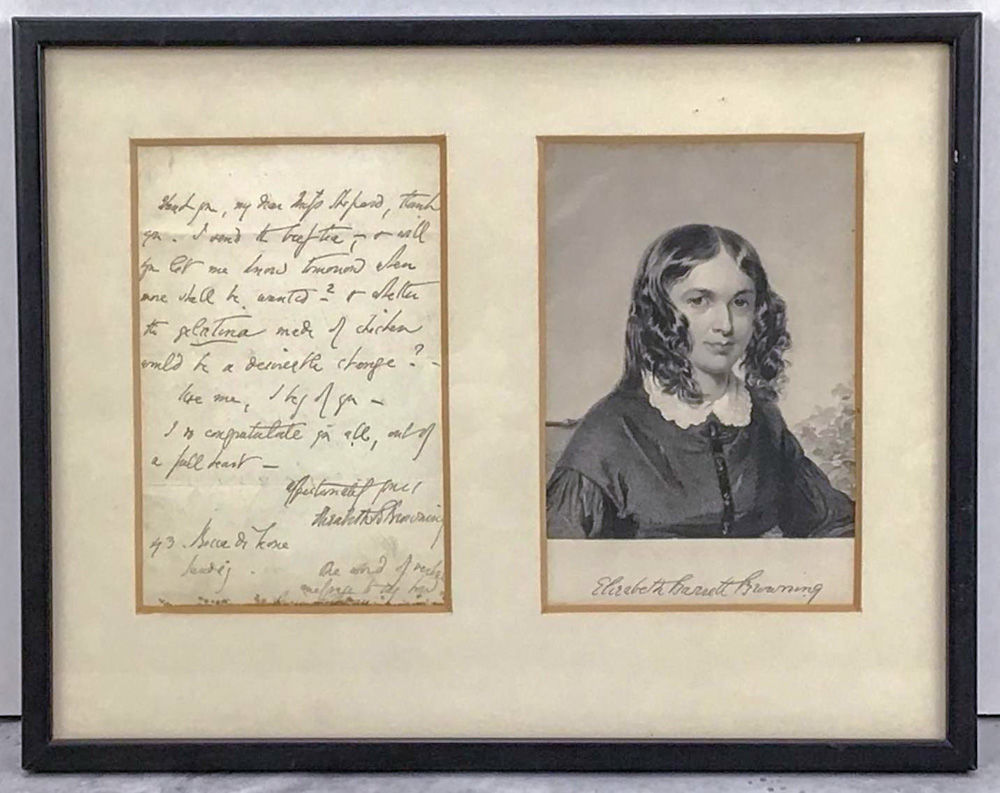 Thank you, my dear Miss Shepard, thank
you. I send the beef tea, - & will
you let me know tomorrow when
more shall be wanted? & whether
the gelatina made of chicken
would be a desirable change? -
Use me, I beg of you -
I so congratulate you all, out of
a full heart -
Affectionately yours
Elizabeth B Browning
43. Bocca di Leone
Sunday.
One word of
to
Elizabeth Barrett Browning